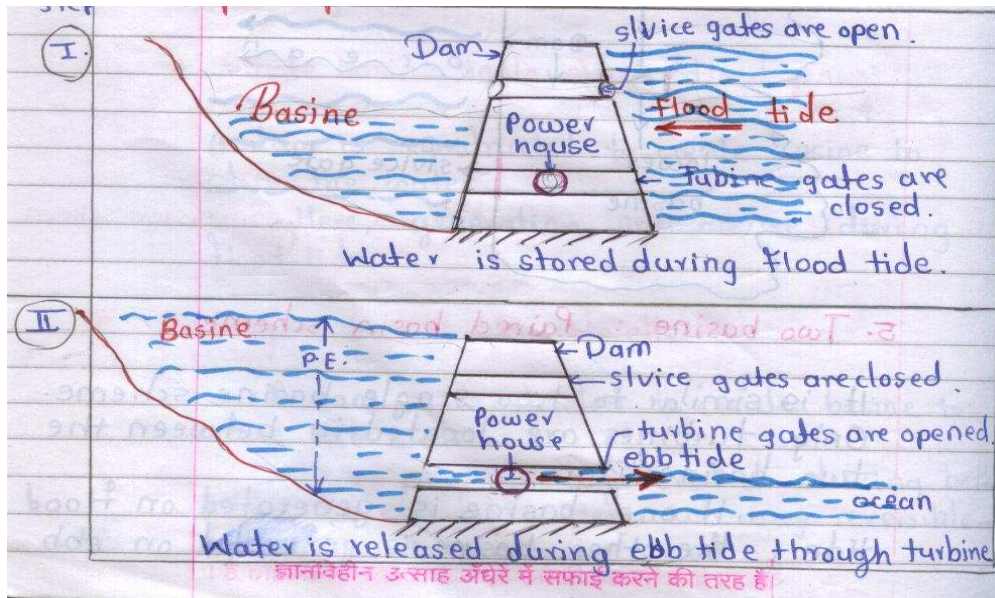 step
I.
Dam
slvice gates are open.
Basine
Flood tide
Power
house
Tubine gates are
closed.
Water is stored during flood tide.
II
Basine
P.E.
Dam
slvice gates are closed.
Power
house
turbine gates are opened.
ebb tide
ocean
Water is released during ebb tide through turbine
ज्ञानविहीन उत्साह अँधेरे में सफाई करने की तरह है।